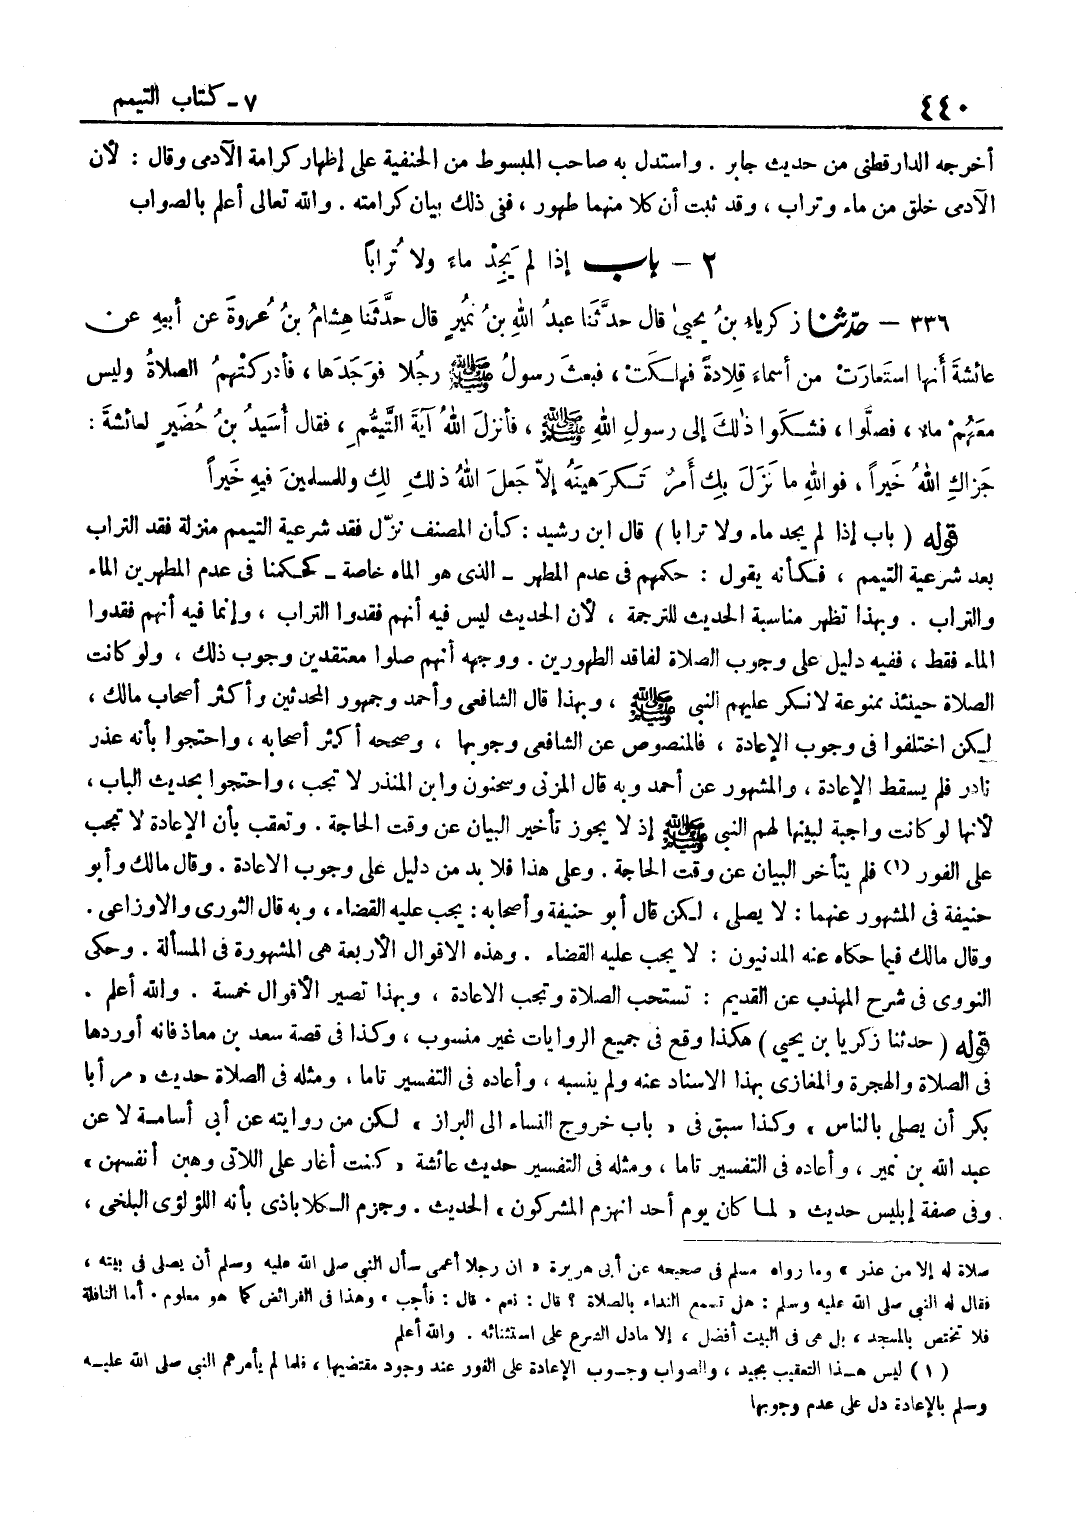 ٤٤٠
٧ - كتاب التيمم
أخرجه الدارقطنى من حديث جابر . واستدل به صاحب المبسوط من الحنفية على إظهار كرامة الآدمى وقال : لأن
الآدمى خلق من ماء وتراب ، وقد ثبت أن كلا منهما طهور ، ففى ذلك بيان كرامته . والله تعالى أعلم بالصواب
٢ - باب إذا لم يَجِدْ ماءً ولا تُراباً
٣٣٦ - حدّثنا زكرياءُ بنُ يحيىٰ قال حدَّثَنا عبدُ اللهِ بنُ نُمَيرٍ قال حدَّثَنا هِشامُ بنُ عُروةَ عن أبيهِ عن
عائشةَ أنها استَعارَتْ من أسماءَ قِلادةً فهلَكَتْ ، فبعثَ رسولُ ﷺ رجُلا فوَجَدَها ، فأدركَتْهمُ الصلاةُ وليس
معَهُمْ ماء ، فصلَّوا ، فشكَوا ذٰلكَ إلى رسولِ اللهِ ﷺ ، فأنزلَ اللهُ آيةَ التَّيمُّمِ ، فقال أُسَيدُ بنُ حُضَيرٍ لعائشةَ :
جَزاكِ اللهُ خَيراً ، فواللهِ ما نَزَلَ بكِ أَمرٌ تَكرَهينَهُ إلاّ جَعلَ اللهُ ذلكِ لكِ وللمسلمينَ فيهِ خَيراً
قوله ( باب إذا لم يجد ماء ولا ترابا ) قال ابن رشيد : كأن المصنف نزّل فقد شرعية التيمم منزلة فقد التراب
بعد شرعية التيمم ، فكأنه يقول : حكمهم فى عدم المطهر - الذى هو الماء خاصة - كحكمنا فى عدم المطهرين الماء
والتراب . وبهذا تظهر مناسبة الحديث للترجمة ، لأن الحديث ليس فيه أنهم فقدوا التراب ، وإنما فيه أنهم فقدوا
الماء فقط ، ففيه دليل على وجوب الصلاة لفاقد الطهورين . ووجهه أنهم صلوا معتقدين وجوب ذلك ، ولو كانت
الصلاة حينئذ ممنوعة لانكر عليهم النبى ﷺ ، وبهذا قال الشافعى وأحمد وجمهور المحدثين وأكثر أصحاب مالك ،
لكن اختلفوا فى وجوب الإعادة ، فالمنصوص عن الشافعى وجوبها ، وصححه أكثر أصحابه ، واحتجوا بأنه عذر
نادر فلم يسقط الإعادة ، والمشهور عن أحمد وبه قال المزنى وسحنون وابن المنذر لا تجب ، واحتجوا بحديث الباب ،
لأنها لو كانت واجبة لبينها لهم النبى ﷺ إذ لا يجوز تأخير البيان عن وقت الحاجة . وتعقب بأن الإعادة لا تجب
على الفور (١) فلم يتأخر البيان عن وقت الحاجة . وعلى هذا فلا بد من دليل على وجوب الاعادة . وقال مالك وأبو
حنيفة فى المشهور عنهما : لا يصلى ، لكن قال أبو حنيفة وأصحابه : يجب عليه القضاء ، وبه قال الثورى والاوزاعى .
وقال مالك فيما حكاه عنه المدنيون : لا يجب عليه القضاء . وهذه الاقوال الأربعة هى المشهورة فى المسألة . وحكى
النووى فى شرح المهذب عن القديم : تستحب الصلاة وتجب الاعادة ، وبهذا تصير الأقوال خمسة . والله أعلم .
قوله ( حدثنا زكريا بن يحيى ) هكذا وقع فى جميع الروايات غير منسوب ، وكذا فى قصة سعد بن معاذ فانه أوردها
فى الصلاة والهجرة والمغازى بهذا الاسناد عنه ولم ينسبه ، وأعاده فى التفسير تاما ، ومثله فى الصلاة حديث « مر أبا
بكر أن يصلى بالناس » وكذا سبق فى « باب خروج النساء الى البراز » لكن من روايته عن أبى أسامة لا عن
عبد الله بن نمير ، وأعاده فى التفسير تاما ، ومثله فى التفسير حديث عائشة « كنت أغار على اللاتى وهبن أنفسهن »
وفى صفة إبليس حديث « لما كان يوم أحد انهزم المشركون » الحديث . وجزم الكلاباذى بأنه اللؤلؤى البلخى ،
صلاة له إلا من عذر » وما رواه مسلم فى صحيحه عن أبى هريرة « ان رجلا أعمى سأل النبى صلى الله عليه وسلم أن يصلى فى بيته ،
فقال له النبى صلى الله عليه وسلم : هل تسمع النداء بالصلاة ؟ قال : نعم . قال : فأجب » وهذا فى الفرائض كما هو معلوم . أما النافلة
فلا تختص بالمسجد ، بل هى فى البيت أفضل ، إلا مادل الشرع على استثنائه . والله أعلم
( ١ ) ليس هذا التعقيب بجيد ، والصواب وجوب الإعادة على الفور عند وجود مقتضيها ، فلما لم يأمرهم النبى صلى الله عليه
وسلم بالإعادة دل على عدم وجوبها